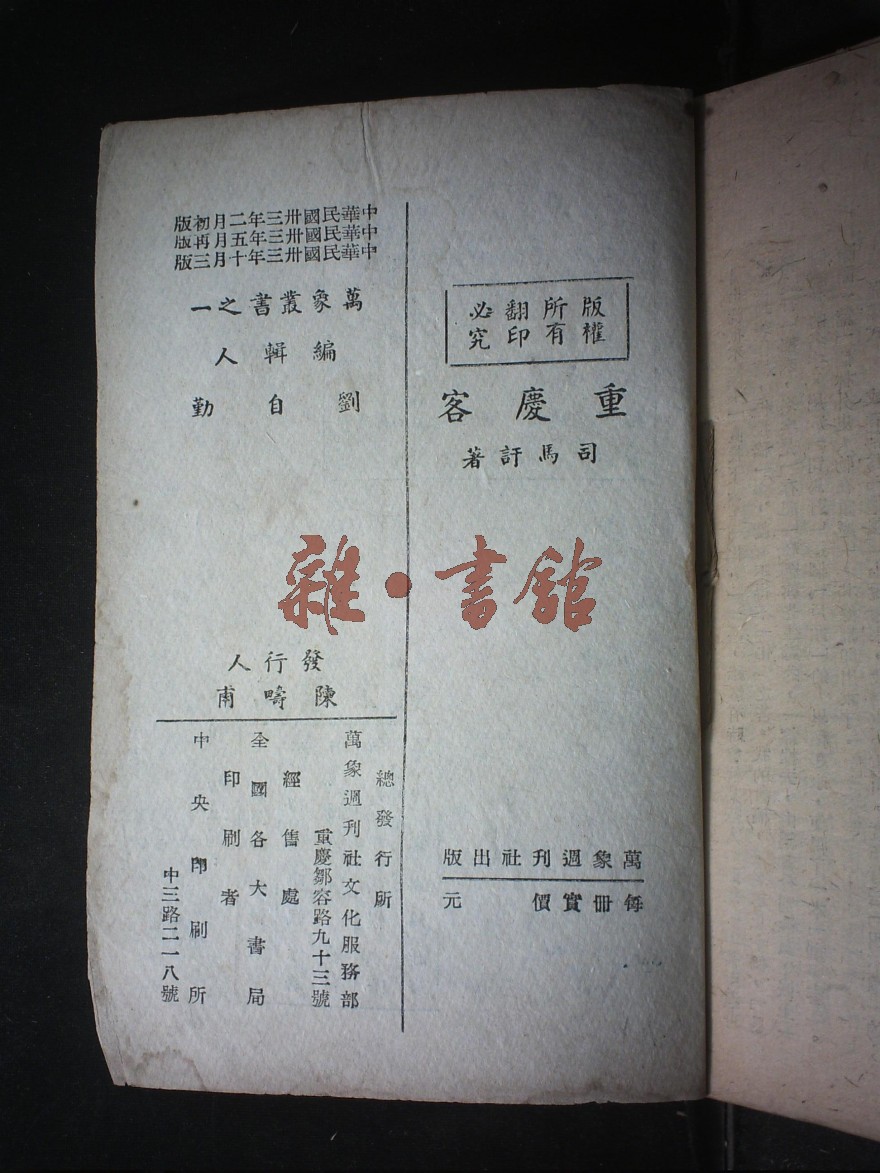 版權所有翻印必究
重慶客
司馬訏著
萬象週刊社出版
每冊實價 元
中華民國卅三年二月初版
中華民國卅三年五月再版
中華民國卅三年十月三版
萬象叢書之一
編輯人
劉自勤
發行人
陳疇甫
總發行所
萬象週刊社文化服務部
重慶鄒容路九十三號
經售處
全國各大書局
印刷者
中央印刷所
中三路二一八號
雜·書館